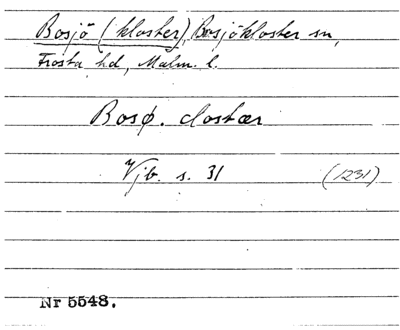 Bosjö (kloster), Bosjökloster sn,
Frosta hd, Malm. l.
Bosø. clostær
Vjb. s. 31 (1231)
Nr 5548.